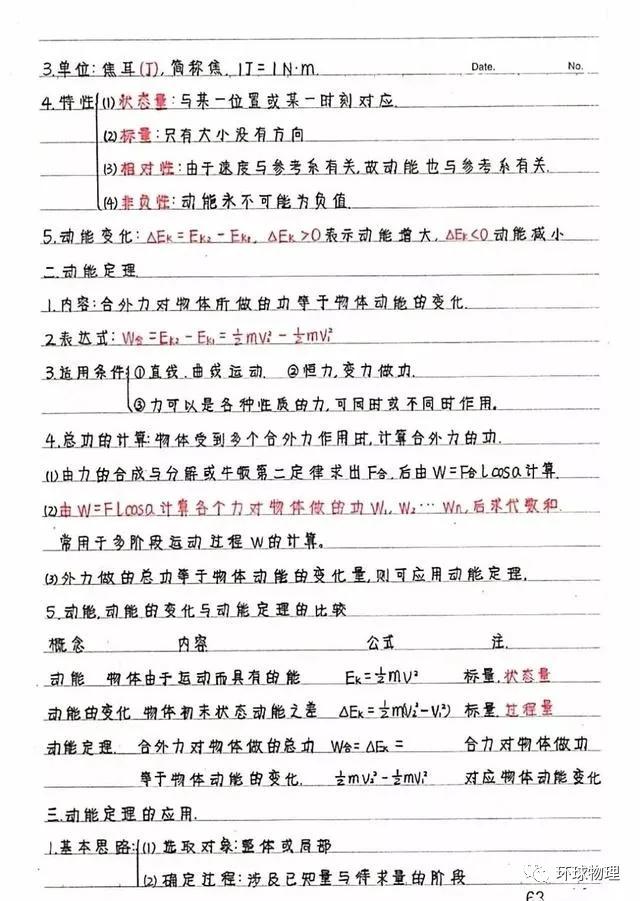 3.单位:焦耳(J),简称焦. 1J=1N·m. Date. No.
4.特性 (1)状态量:与某一位置或某一时刻对应.
(2)标量:只有大小没有方向
(3)相对性:由于速度与参考系有关,故动能也与参考系有关.
(4)非负性:动能永不可能为负值.
5.动能变化:ΔEk=Ek₂-Ek₁, ΔEk>0表示动能增大, ΔEk<0动能减小
二.动能定理
1.内容:合外力对物体所做的功等于物体动能的变化.
2.表达式:W合=Ek₂-Ek₁=½mv₂²-½mv₁²
3.适用条件 ①直线.曲线运动. ②恒力,变力做功.
③力可以是各种性质的力,可同时或不同时作用。
4.总功的计算:物体受到多个合外力作用时,计算合外力的功.
(1)由力的合成与分解或牛顿第二定律求出F合,后由W=F合lcosα计算.
(2)由W=Flcosα计算各个力对物体做的功W₁,W₂…Wn,后求代数和.
常用于多阶段运动过程W的计算。
(3)外力做的总功等于物体动能的变化量,则可应用动能定理.
5.动能,动能的变化与动能定理的比较
概念 内容 公式 注.
动能 物体由于运动而具有的能 Ek=½mv² 标量.状态量
动能的变化 物体初末状态动能之差 ΔEk=½m(v₂²-v₁²) 标量.过程量
动能定理. 合外力对物体做的总功 W合=ΔEk= 合力对物体做功
等于物体动能的变化. ½mv₂²-½mv₁² 对应物体动能变化
三.动能定理的应用.
1.基本思路: (1)选取对象:整体或局部
(2)确定过程:涉及已知量与待求量的阶段
环球物理
63